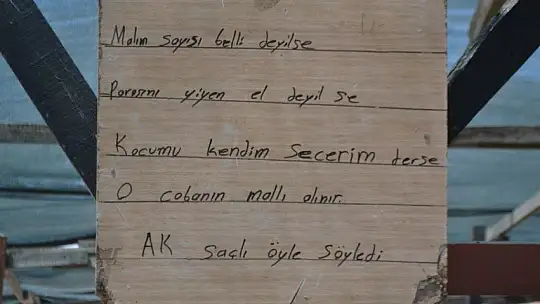 Malın sayısı belli deyilse
Parasını yiyen el deyil se
Kocumu kendim secerim derse
O cobanın mallı alınır.
AK saclı öyle söyledi